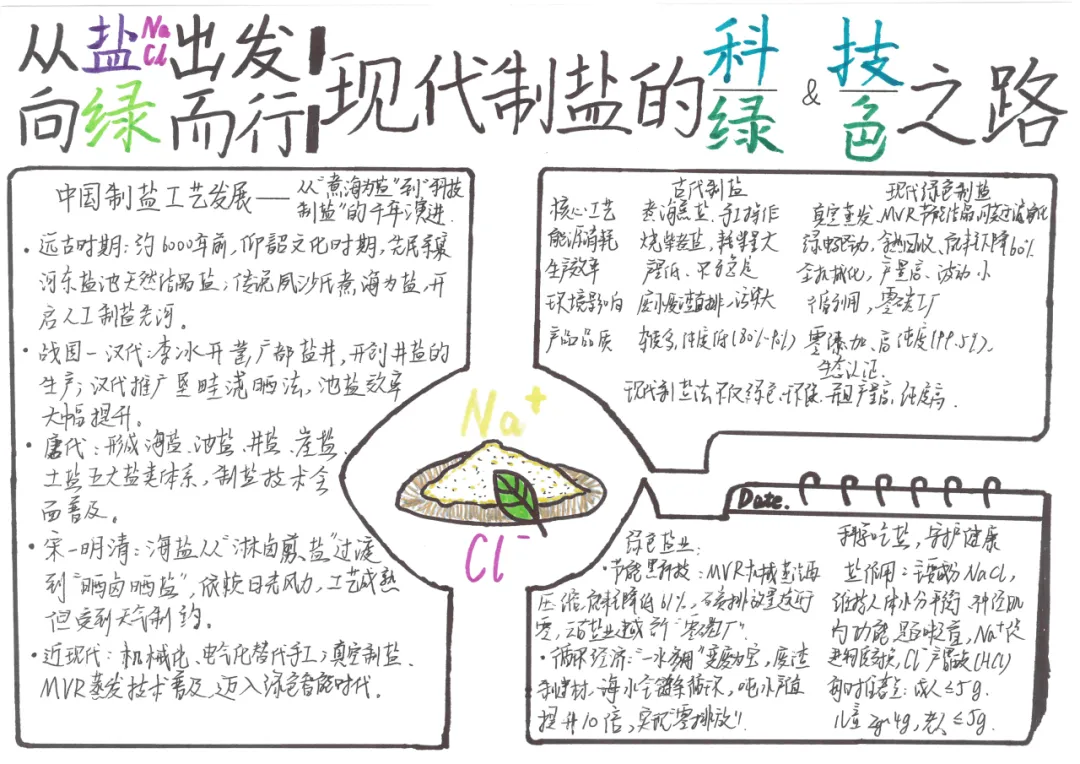 从盐NaCl出发
向绿而行
现代制盐的科技&绿色之路
中国制盐工艺发展——从"煮海为盐"到"科技
制盐"的千年演进.
·远古时期:约6000年前,仰韶文化时期,先民采集
河东盐池天然结晶盐;传说夙沙氏煮海为盐,开
启人工制盐先河。
·战国-汉代:李冰开凿广都盐井,开创井盐的
生产;汉代推广垦畦浇晒法,池盐效率
大幅提升。
·唐代:形成海盐、池盐、井盐、崖盐、
土盐五大盐类体系,制盐技术全
面普及。
·宋-明清:海盐从"淋卤煎盐"过渡
到"晒卤晒盐",依赖日光风力,工艺成熟
但受到天气制约。
·近现代:机械化、电气化替代手工;真空制盐、
MVR蒸发技术普及,迈入绿色智能时代。
古代制盐 现代绿色制盐
核心工艺 煮海熬盐、手工操作 真空蒸发、MVR节能结晶
能源消耗 烧柴煮盐,耗柴量大 余热回收、能耗下降60%
生产效率 全机械化,产量高、波动小
环境影响 零碳工厂
产品品质 杂质多,纯度低 零添加、高纯度(99.5%)、
生态认证.
现代制盐法不仅绿色、环保,而且产量高,纯度高.
Na⁺
Cl⁻
Date.
绿色盐业:
·节能黑科技:MVR机械蒸汽再
压缩,能耗降低61%,碳排放量趋近于
零,"零碳工厂".
·循环经济:"一水多用"变废为宝,废渣
制建材,海水全链条循环,吨水产值
提升10倍,实现"零排放"!
科学吃盐,守护健康
盐作用:主要成分NaCl,
维持人体水分平衡、神经肌
肉功能,
Cl⁻产胃酸(HCl)
每日推荐量:成人≤5g.
儿童2g-4g,老人≤5g.